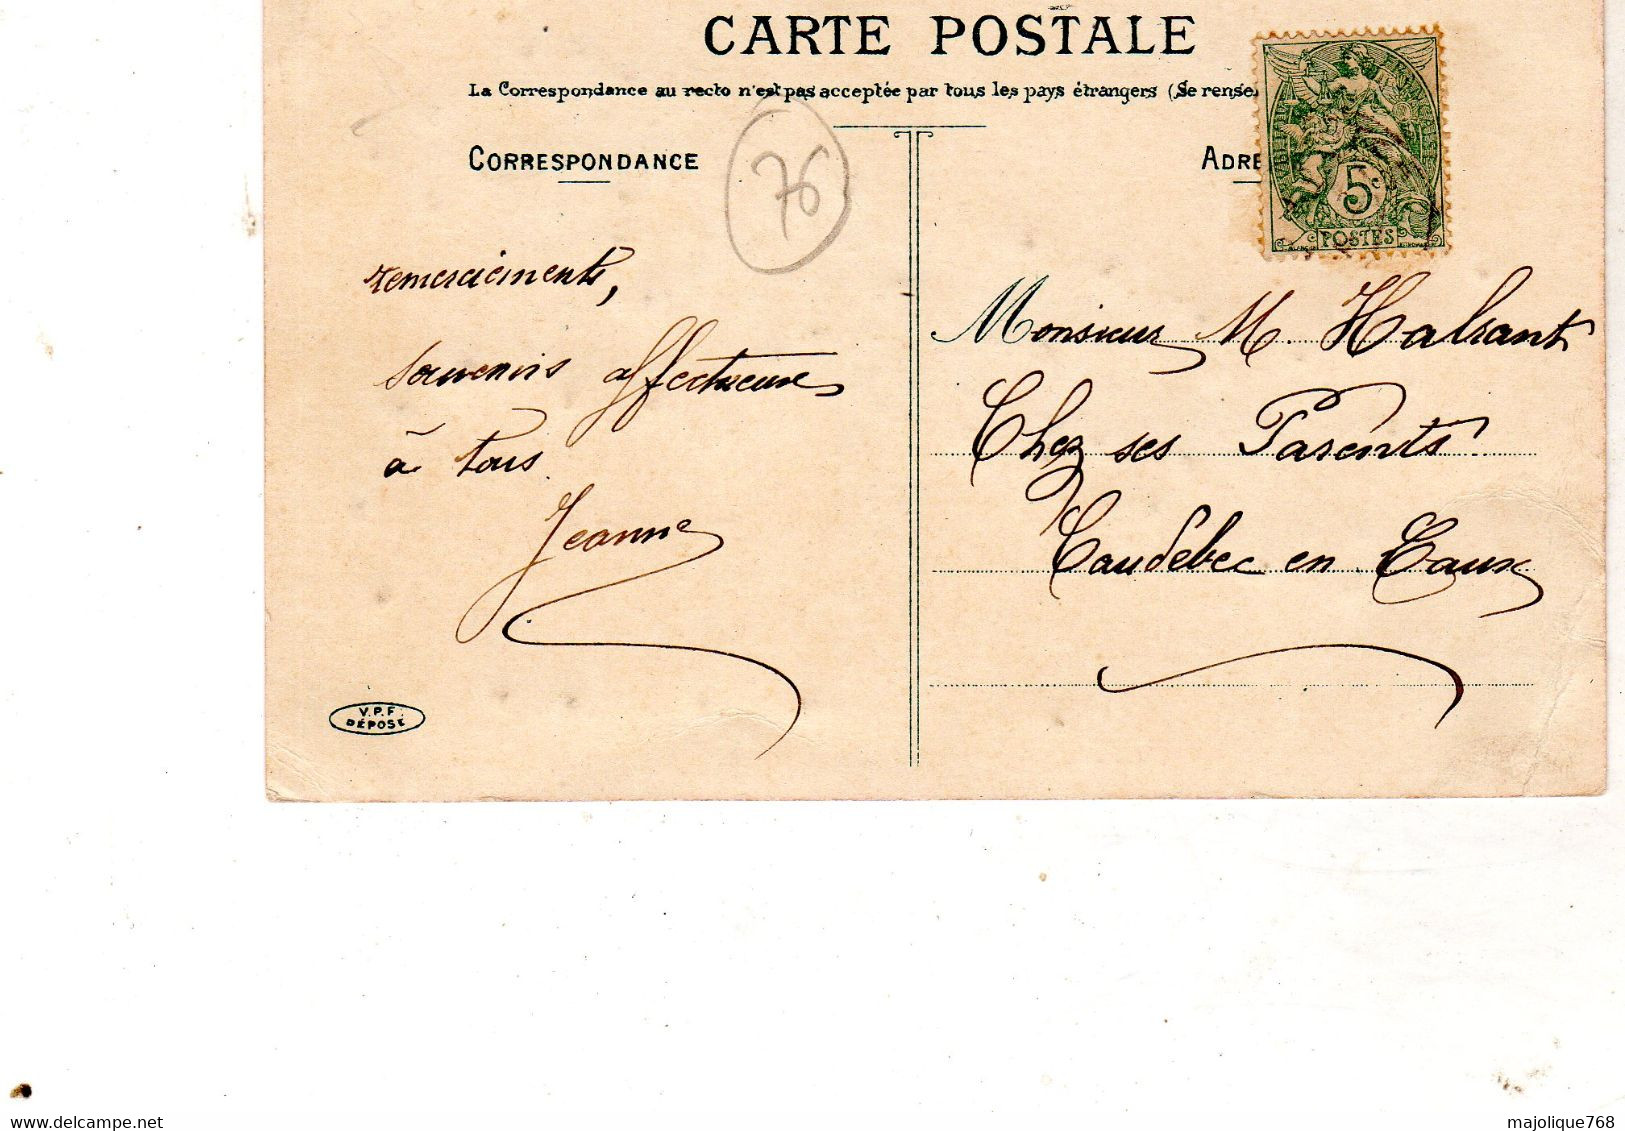 CARTE POSTALE
La Correspondance au recto n'est pas acceptée par tous les pays étrangers (Se rense
CORRESPONDANCE
ADRE
76
5c
POSTES
remerciements,
souvenirs affectueux
à tous.
Jeanne
V.P.F.
DÉPOSÉ
Monsieur M. Halzant
Chez ses Parents
Caudebec en Caux
majolique768